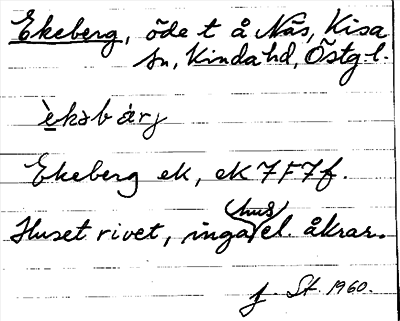 Ekeberg, öde t å Näs, Kisa
sn, Kinda hd, Östg.l.
èkəbàrj
Ekeberg ek, ek 7F7f.
Huset rivet, inga (hus) el. åkrar.
f. St. 1960.